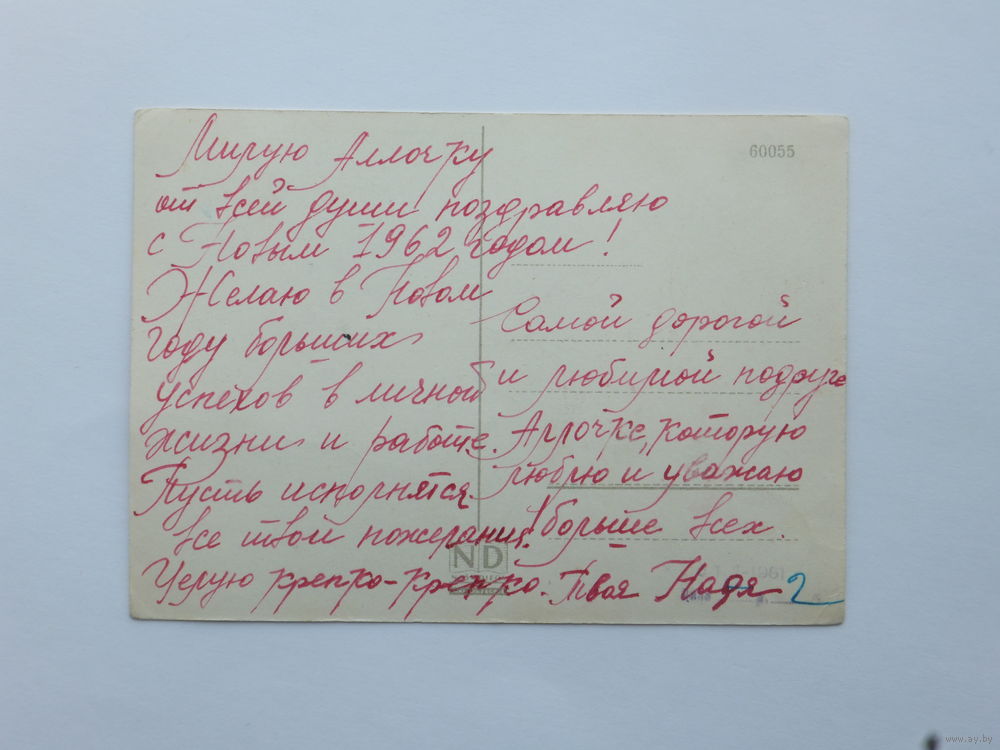 Милую Аллочку
от всей души поздравляю
с Новым 1962 годом!
Желаю в Новом
году больших
успехов в личной
жизни и работе.
Пусть исполнятся
все твои пожелания!
Целую крепко-крепко. Твоя Надя
60055
Самой дорогой
и любимой подруге
Аллочке, которую
люблю и уважаю
больше всех.
ND
2
www.ay.by